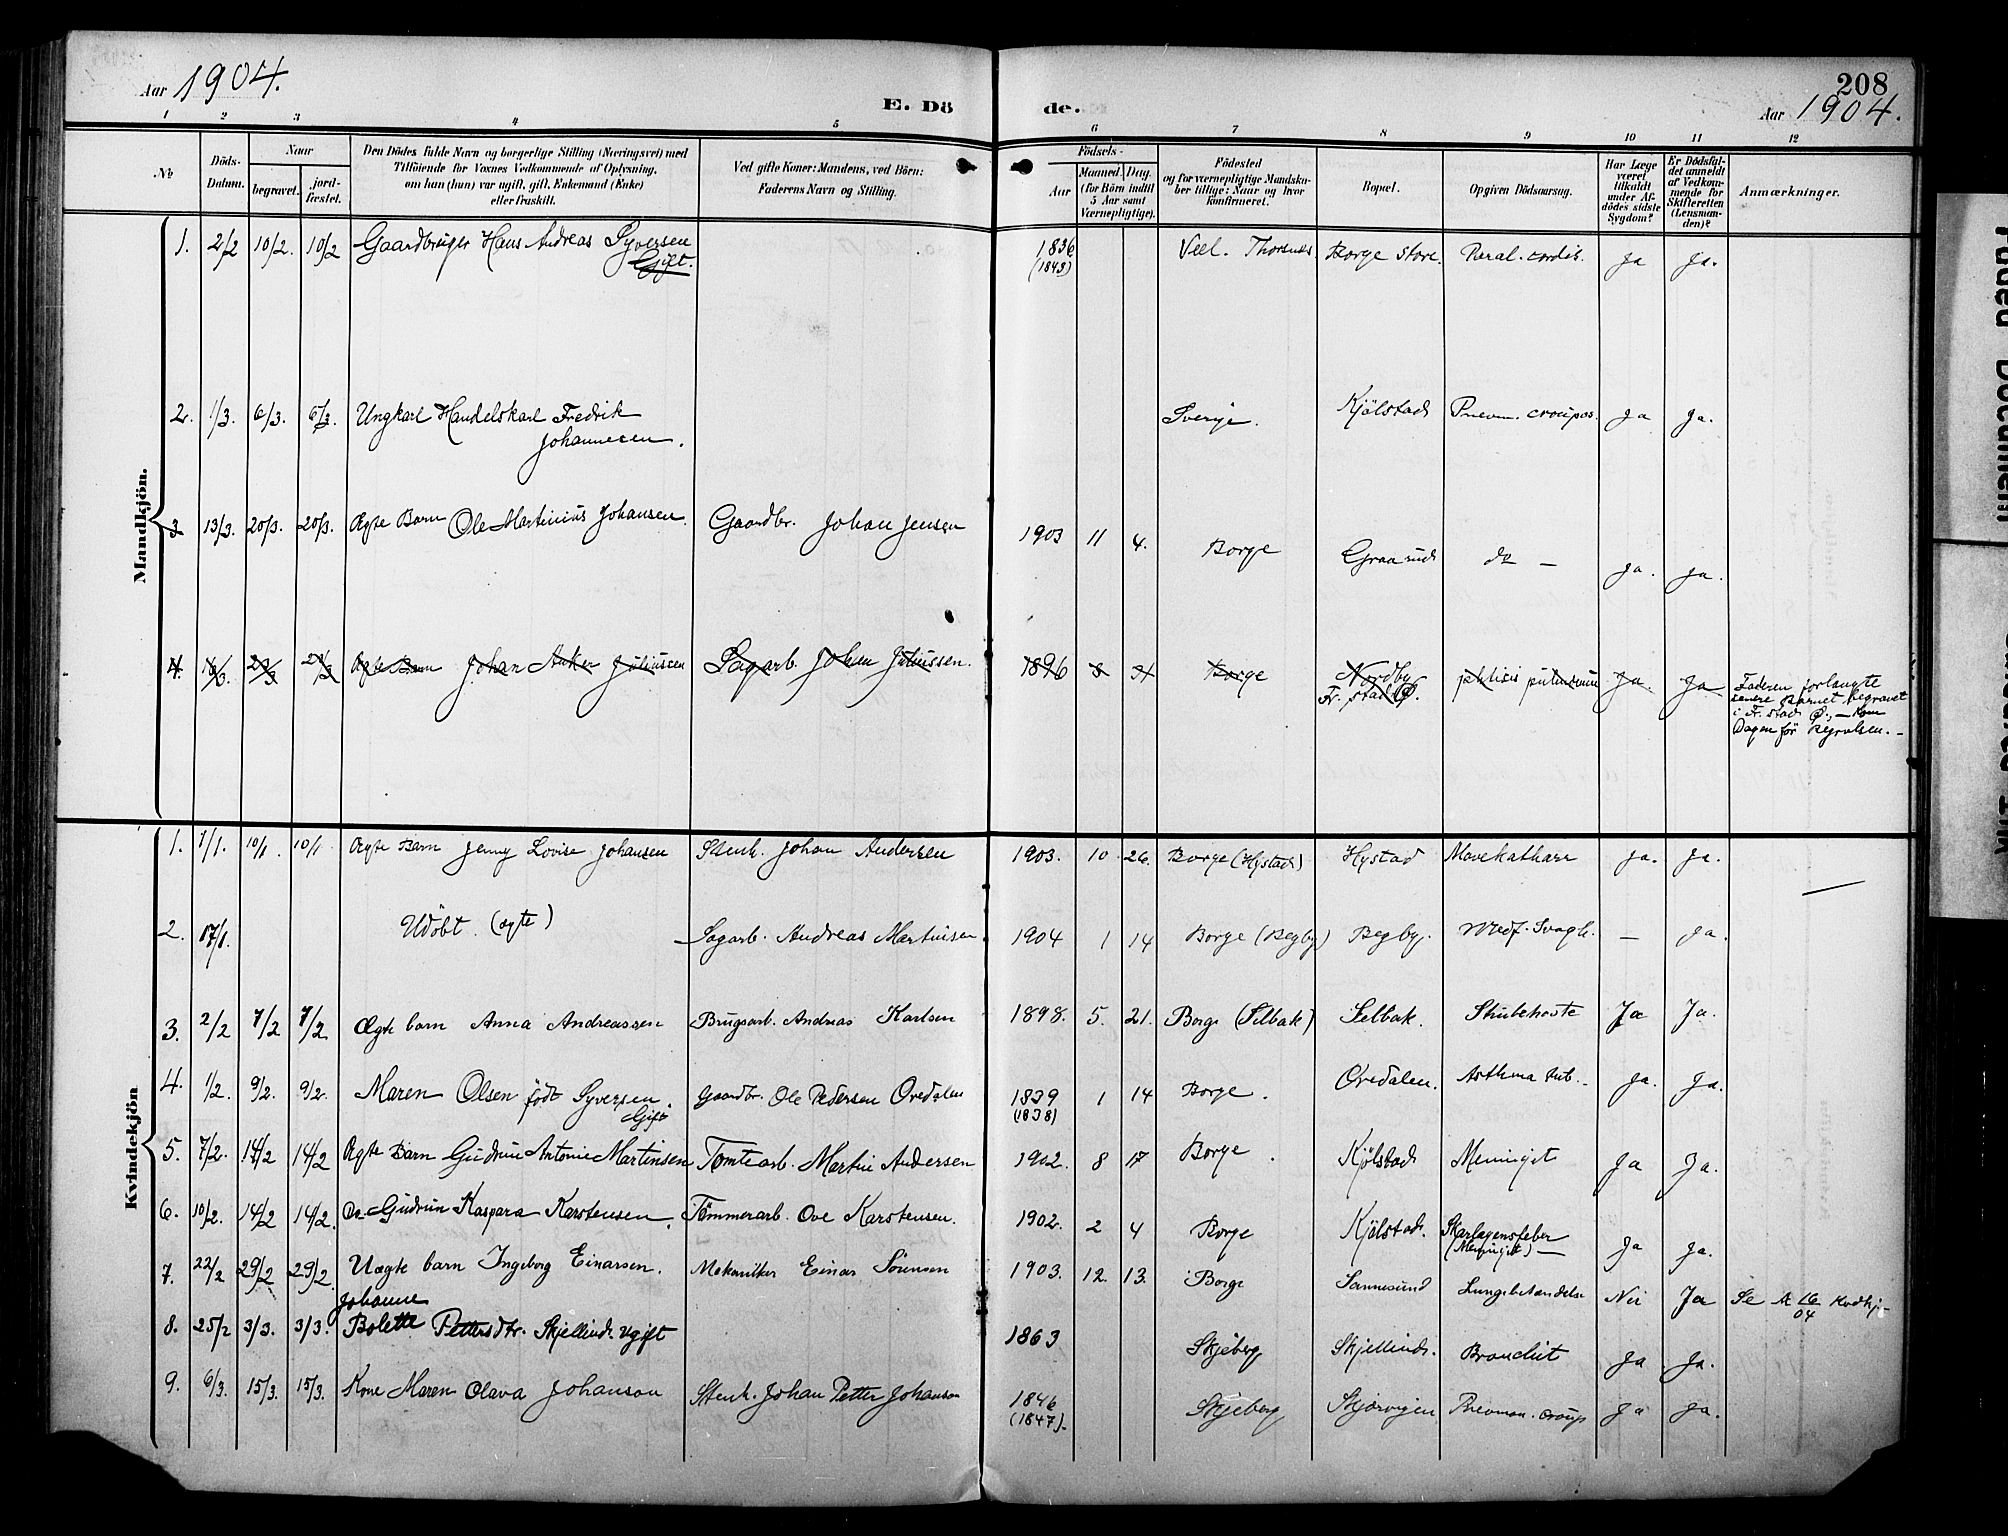 Aar 1904.
E. Dö
de.
208
Aar 1904.
1 2 3 4 5 6 7 8 9 10 11 12
№
Döds-
Datum.
Naar
begravet.
jord-
fæstet.
Den Dödes fulde Navn og borgerlige Stilling (Næringsvei) med
Tilföiende for Voxnes Vedkommende af Oplysning,
om han (hun) var ugift, gift, Enkemand (Enke)
eller fraskilt.
Ved gifte Koner: Mandens, ved Börn:
Faderens Navn og Stilling.
Födsels-
Aar
Maaned. Dag.
(for Börn indtil
5 Aar samt
Værnepligtige).
Födested
og for værnepligtige Mandska-
ber tillige: Naar og hvor
konfirmeret.
Bopæl.
Opgiven Dödsaarsag.
Har Læge
været
tilkaldt
under Af-
dödes sidste
Sygdom?
Er Dödsfal-
det anmeldt
af Vedkom-
mende for
Skifteretten
(Lensman-
den)?
Anmærkninger.
Mandkjön.
1. 2/2 10/2. 10/2 Gaardbruger Hans Andreas Syversen 1836 Thorsnes Borge store. Paral. cordis. Ja Ja.
Gift. (1843)
2. 1/3. 6/3. 6/3 Ungkarl Handelskarl Fredrik Sverige. Kjölstad Pnevm. croupos. Ja Ja.
Johannesen.
3 13/3. 20/3. 20/3. Ægte Barn Ole Martinius Johansen. Gaardbr. Johan Jensen 1903 11 4. Borge Graarud do — Ja. Ja.
4. Ægte Barn Johan Anker Juliussen Sagarb. Johan Juliussen. 1896 Borge Nordby Ja Ja
Fr.stad Ø.
Faderen forlangte
senere Barnet begravet
i Fr.stad Ø., — kom
Dagen för Begravelsen. -
Kvindekjön
1. 1/1. 10/1. 10/1 Ægte Barn Jenny Lovise Johansen Stenh. Johan Andersen 1903. 10 26. Borge (Hystad) Hystad Mavekatharr Ja. Ja.
2. 17/1. Udöbt. (ægte) Sagarb. Andreas Martinsen. 1904 1 14 Borge (Begby) Begby. Medf. Svagh. — Ja.
3. 2/2 7/2 7/2. Ægte barn Anna Andreassen Brugsarb. Andreas Karlsen 1898. 5. 21. Borge (Selbak) Selbak. Strubehoste Ja Ja.
4. 1/2. 9/2. 9/2. Maren Olsen födt Syversen. Gaardbr. Ole Pedersen Oredalen 1839 1 14 Borge. Oredalen. Asthma Ja. Ja.
Gift (1838)
5. 7/2. 14/2 14/2 Ægte Barn Gudrun Antonie Martinsen Tomtearb. Martin Andersen 1902. 8 17 Borge. Kjölstad Meningit Ja Ja.
6. 10/2. 14/2 14/2. Do Gudrun Kaspara Karstensen. Tömmerarb. Ove Karstensen. 1902. 2 4 Borge Kjölstad. Skarlagensfeber Ja Ja.
(Meningit) —
7. 22/2 29/2 29/2. Uægte barn Ingeborg Einarsen. Mekaniker Einar Sörensen 1903. 12. 13. Borge Sannesund Lungebetændelse Nei Ja Se № 16/04 Kvdkj-
Johanne
8. 25/2 3/3. 3/3. Bolette Pettersdtr. Skjellind. Ugift 1863 Skjeberg Skjellind. Bronchit Ja Ja.
9. 6/3. 15/3. 15/3. Kone Maren Olava Johanson Stenh. Johan Petter Johanson 1846 Skjeberg Skjærvigen Pnevmon. croup Ja Ja.
(1847).